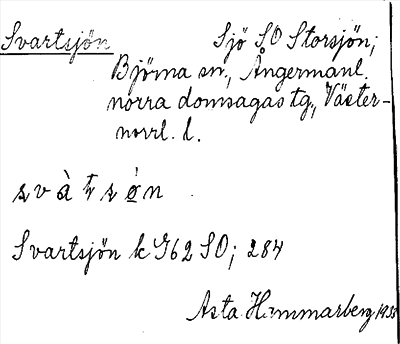 Svartsjön Sjö SO Storsjön;
Björna sn., Ångermanl.
norra domsagas tg., Väster-
norrl. l.
svàtsø̀n
Svartsjön k G62 SO; 284
Asta Hammarberg 1933